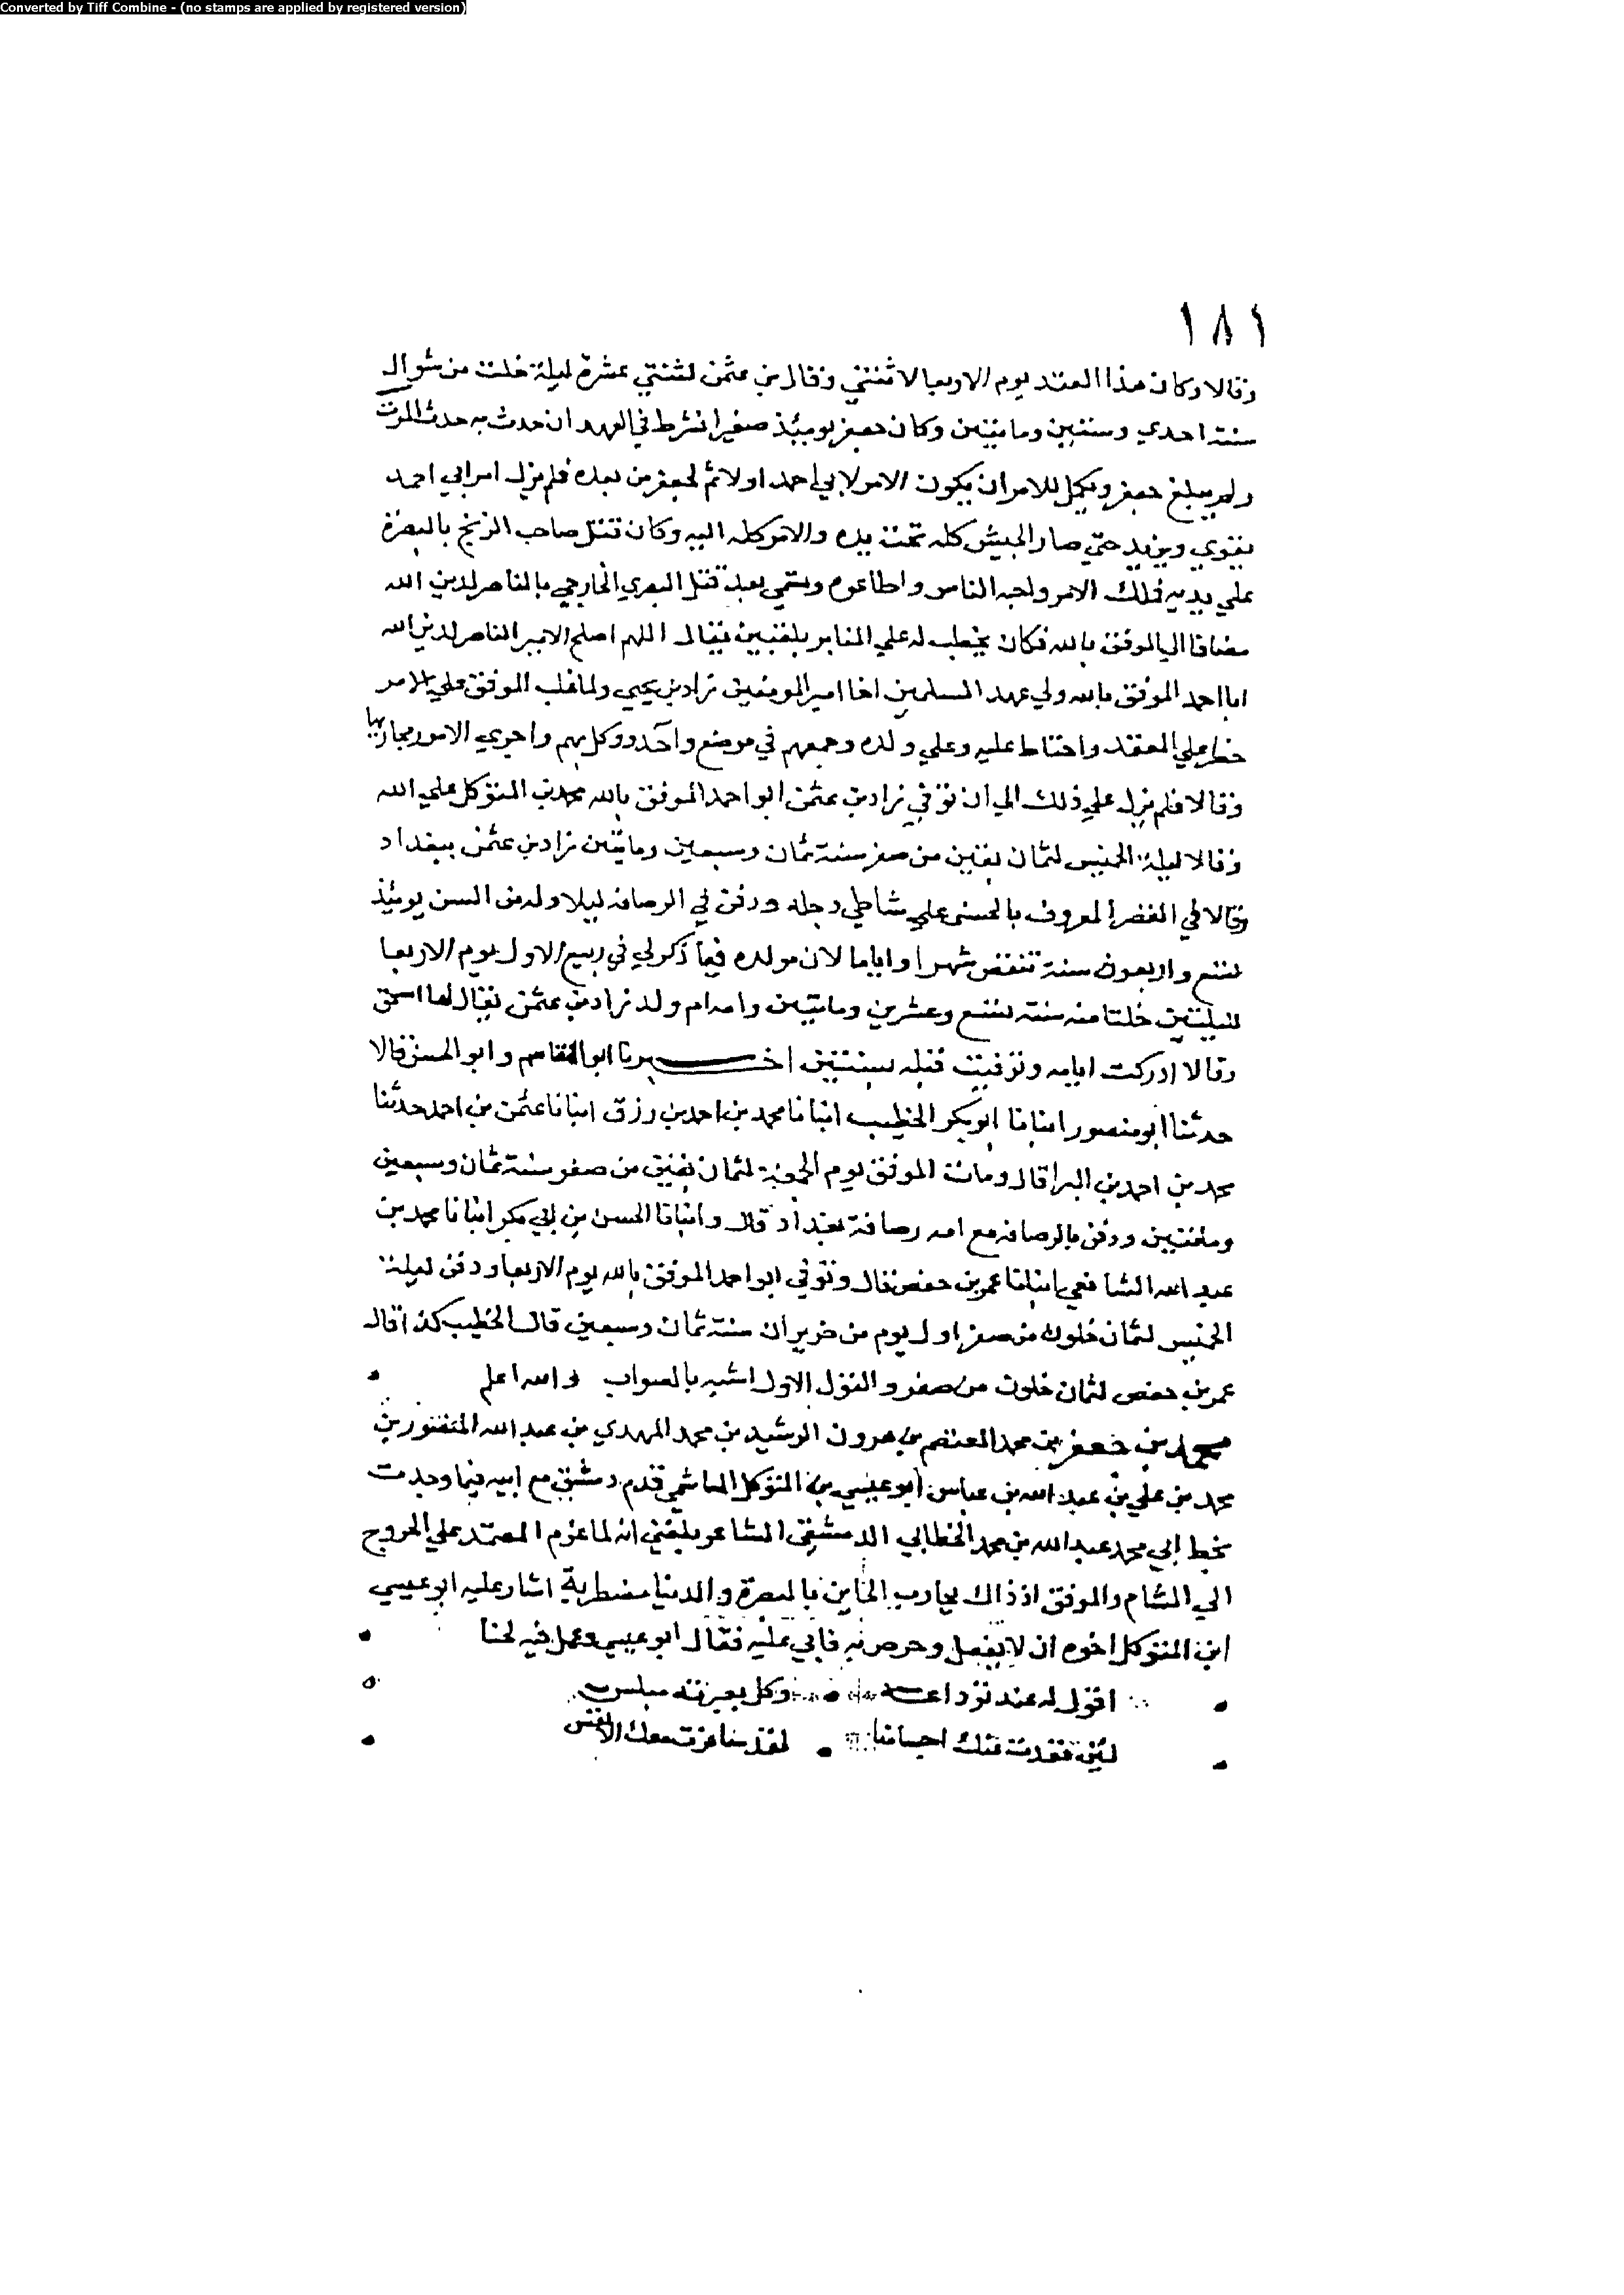 Converted by Tiff Combine - (no stamps are applied by registered version)
١٨١
وقالا وكان هذا العقد يوم الاربعا لاثنتي وقال بن عثمن لثنتي عشرة ليلة خلت من شوال
سنة احدي وستين ومايتين وكان جعفر يوميذ صغيرا فشرط في العهد ان حدث به حدث الموت
ولم يبلغ جعفر ويكمل للامر ان يكون الامر لابي احمد اولا ثم لجعفر من بعده فلم يزل امر ابي احمد
يقوي ويزيد حتي صار الجيش كله تحت يده والامر كله اليه وكان قتل صاحب الزنج بالبصرة
علي يديه فملك الامر واحبه الناس واطاعوه وسمي بعد قتل البصري الخارجي بالناصر لدين الله
مضافا الي الموفق بالله فكان يخطب له علي المنابر بلقبين فيقال اللهم اصلح الامير الناصر لدين الله
ابا احمد الموفق بالله ولي عهد المسلمين اخا امير المومنين زاد بن يحيي ولما غلب الموفق علي الامر
حظر علي المعتمد واحتاط عليه وعلي ولده وجمعهم في موضع واحد ووكل بهم واجري الامور مجاريها
وقالا فلم يزل علي ذلك الي ان توفي زاد بن عثمن ابو احمد الموفق بالله محمد بن المتوكل علي الله
وقالا ليلة الخميس لثمان بقين من صفر سنة ثمان وسبعين ومايتين زاد بن عثمن ببغداد
وقالا في القصر المعروف بالحسني علي شاطي دجله ودفن في الرصافه ليلا وله من السن يوميذ
تسع واربعون سنة تنقص شهرا واياما لان مولده فيما ذكر لي في ربيع الاول يوم الاربعا
لليلتين خلتا منه سنة تسع وعشرين ومايتين وامه ام ولد زاد بن عثمن يقال لها اسحق
وقالا ادركت ايامه وتوفيت قبله بسنتين اخبرنا ابو القاسم وابو الحسن قالا
حدثنا ابو منصور انبانا ابو بكر الخطيب انبانا محمد بن احمد بن رزق انبانا عثمن بن احمد حدثنا
محمد بن احمد بن البرا قال ومات الموفق يوم الجمعة لثمان بقين من صفر سنة ثمان وسبعين
ومئتين ودفن بالرصافه مع امه رصافة بغداد قال وانبانا الحسن بن ابي بكر انبانا محمد بن
عبد الله الشافعي انبانا عمر بن حفص قال وتوفي ابو احمد الموفق بالله يوم الاربعا ودفن ليلة
الخميس لثمان خلون من صفر اول يوم من حزيران سنة ثمان وسبعين قال الخطيب كذا قال
عمر بن حفص لثمان خلون من صفر والقول الاول اشبه بالصواب والله اعلم
محمد بن جعفر بن محمد المعتصم بن هرون الرشيد بن محمد المهدي بن عبد الله المنصور بن
محمد بن علي بن عبد الله بن عباس ابو عيسي بن المتوكل الهاشمي قدم دمشق مع ابيه فيما وجدت
بخط ابي محمد عبد الله بن محمد الخطابي الدمشقي الشاعر بلغني انه لما عزم المعتمد علي الخروج
الي الشام والموفق اذ ذاك يحارب الخاين بالبصرة والدنيا مضطربة اشار عليه ابو عيسي
ابن المتوكل اخوه ان لا يفعل وحرص به فابي عليه فقال ابو عيسي وعمل فيه لحنا
اقول له عند توداعه وكل بعبرته مبلس
لئن قعدت عنك اجسامنا لقد سافرت معك الانفس